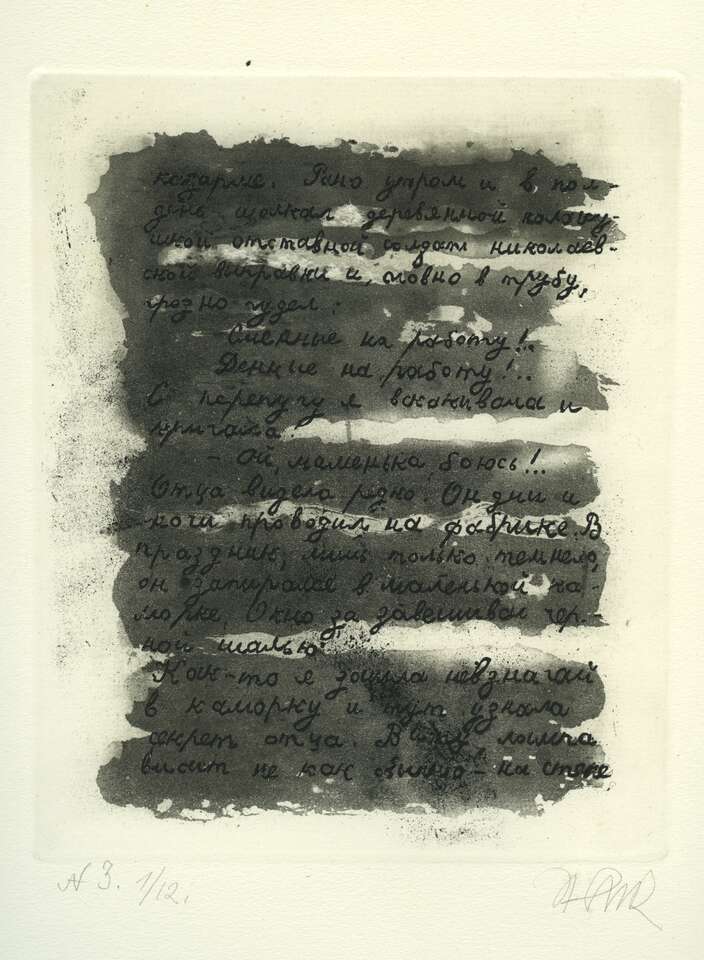 казарме. Рано утром и в пол-
день щелкал деревянной колату-
шкой отставной солдат николаев-
ской выправки и, словно в трубу,
грозно гудел:
Сменные на работу!..
Денные на работу!..
С перепугу я вскакивала и
кричала:
- Ой, маменька, боюсь!..
Отца видела редко. Он дни и
ночи проводил на фабрике. В
праздник, лишь только темнело,
он запирался в маленькой ка-
морке. Окно за завешивал чер-
ной шалью.
Как-то я зашла невзначай
в каморку и тут узнала
секрет отца. В углу лампа
висит не как обычно - на стене
N 3. 1/12.